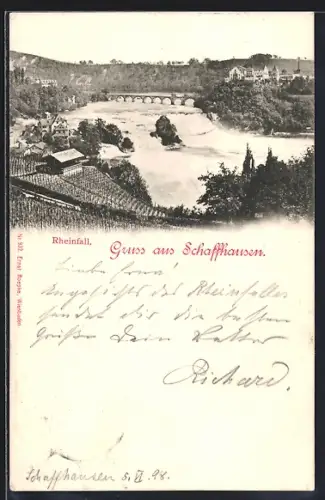 Rheinfall.
Gruss aus Schaffhausen.
Liebe Erna!
Angesichts des Rheinfalles
sendet dir die besten
Grüße Dein Vetter
Richard.
Schaffhausen 5. VI. 98.
Ernst Roepke, Wiesbaden.